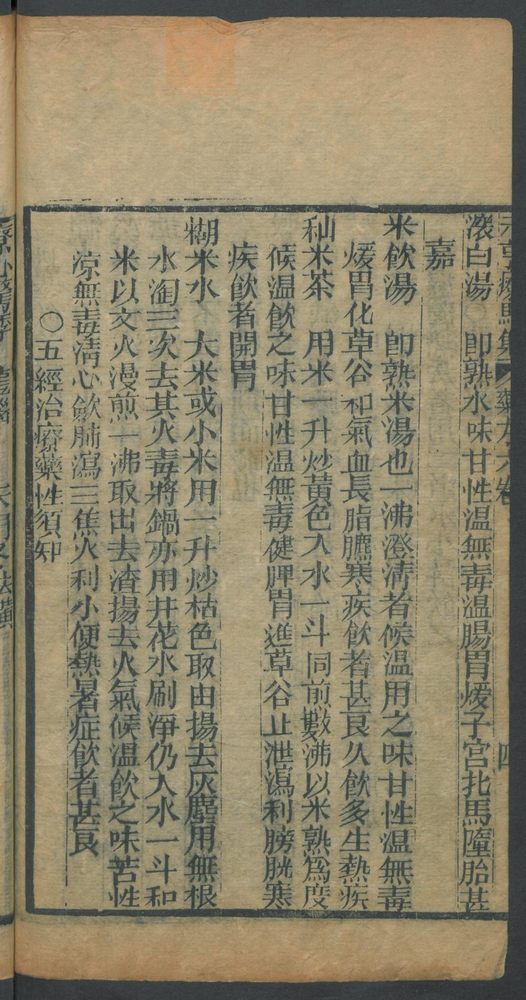 元亨療馬集 藥方六卷 四
滾白湯 即熟水味甘性溫無毒溫腸胃煖子宮牝馬墮胎甚
嘉
米飲湯 即熟米湯也一沸澄清者候溫用之味甘性溫無毒
煖胃化草谷和氣血長脂臕寒疾飲者甚良久飲多生熱疾
秈米茶 用米一升炒黃色入水一斗同前數沸以米熟爲度
候溫飲之味甘性溫無毒健脾胃進草谷止泄瀉利膀胱寒
疾飲者開胃
糊米水 大米或小米用一升炒枯色取由揚去灰塵用無根
水淘三次去其火毒將鍋亦用井花水刷淨仍入水一斗和
米以文火漫煎一沸取出去渣揚去火氣候溫飲之味苦性
涼無毒淸心斂肺瀉三焦火利小便熱暑症飲者甚良
〇五經治療藥性須知